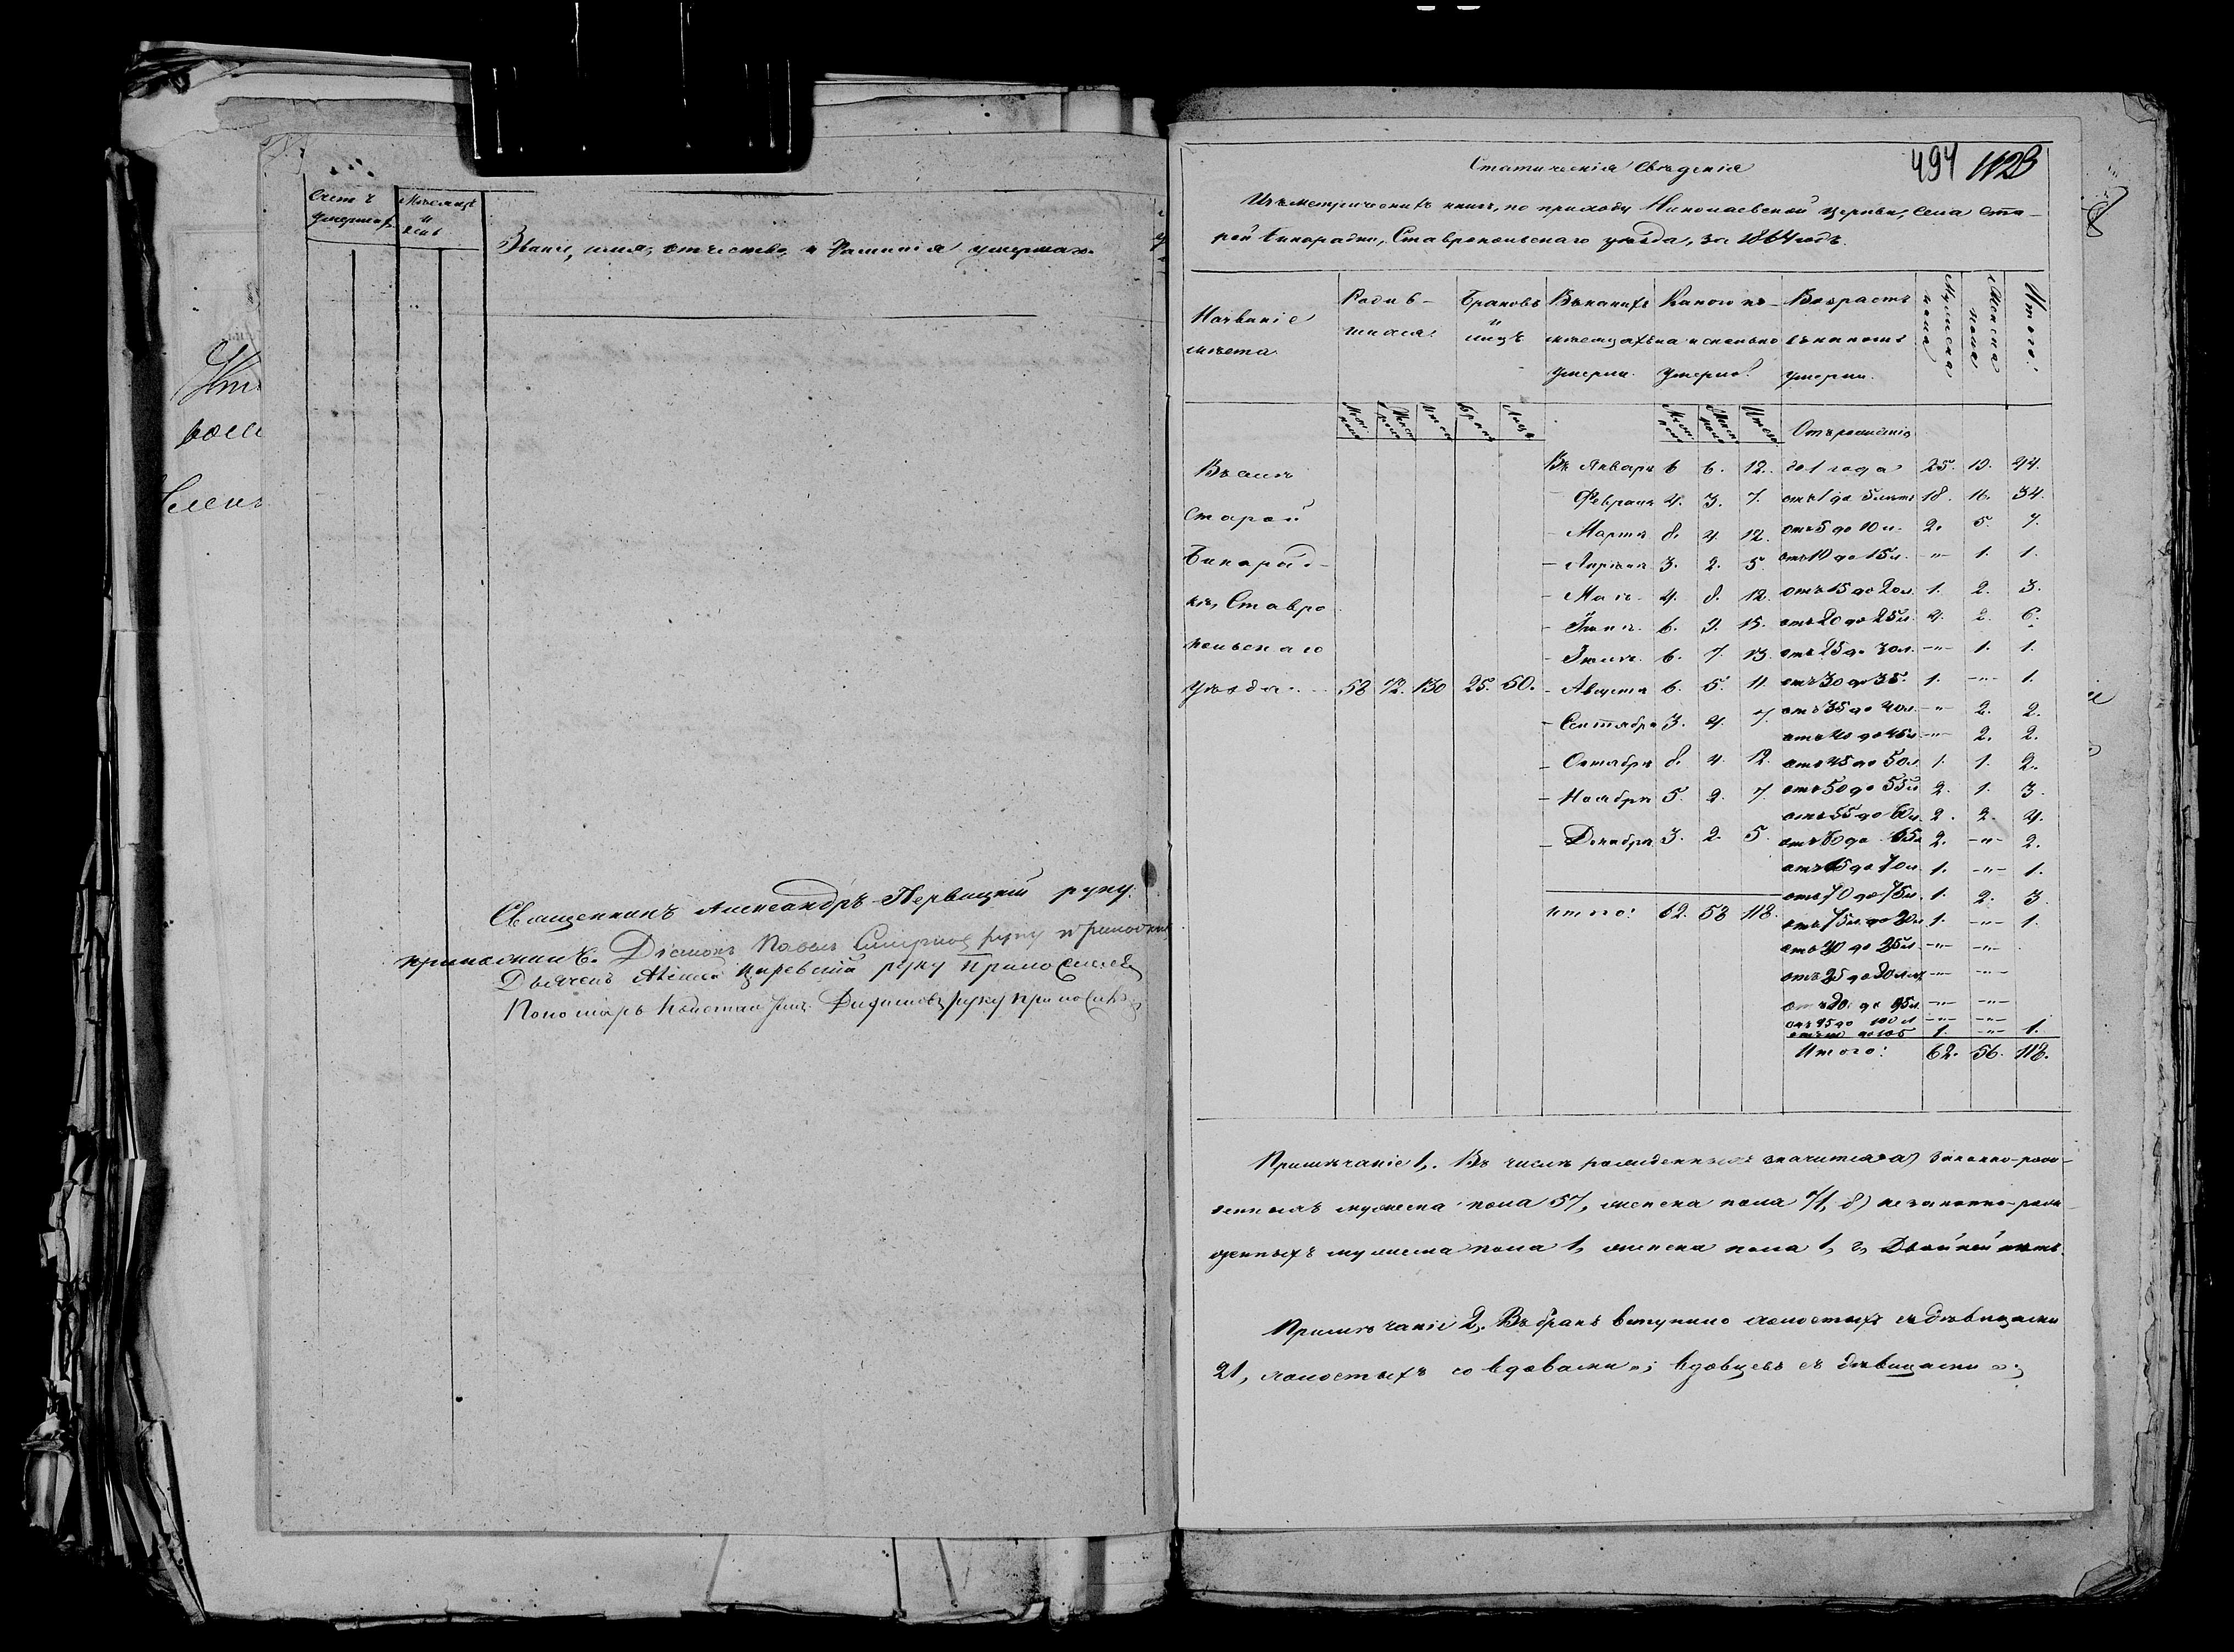 Счетъ
умершихъ
Мѣсяцъ
и
день
Званіе, имя, отчество, и Фамилія умершаго.
Священникъ Александръ Первицкій руку
приложилъ. Діаконъ Павелъ Смирновъ руку приложилъ
Дьячекъ Царевскій руку приложилъ
Пономарь Константинъ руку приложилъ
494 1123
Статическія Свѣденія
Изъ метрическихъ книгъ, по приходу Николаевской церкви, села Ста-
рой Бинарадки, Ставропольскаго уѣзда, за 1864 годъ.
Названіе
мѣста
Родив-
шихся
Браковъ
и
лицъ
Въ какихъ
мѣсяцахъ
умерли.
Какого по-
ла и сколько
умерло?
Возрастъ
въ какомъ
умерли.
Мужска
пола
Женска
пола
Итого:
Муж. пола
Жен. пола
Итого
Брак.
Лицъ
Муж. пола
Жен. пола
Итого
Отъ рожденія
Въ селѣ
Старой
Бинарад-
кѣ, Ставро
польскаго
уѣзда. 58 72. 130 25. 50.
Въ Январѣ 6 6. 12.
Февралѣ 4. 3. 7.
Мартѣ 8. 4 12.
Апрѣлѣ 3. 2. 5
Маѣ 4. 8. 12.
Іюнѣ 6. 9. 15.
Іюлѣ 6. 7. 13.
Августѣ 6. 5. 11.
Сентябрѣ 3. 4. 7.
Октябрѣ 8. 4. 12.
Ноябрѣ 5. 2. 7.
Декабрѣ 3. 2. 5
Итого: 62. 56 118.
до 1 года 25. 19. 44.
отъ 1 до 5 лѣтъ 18. 16. 34.
отъ 5 до 10 л. 2. 5. 7.
отъ 10 до 15 л. -"- 1. 1.
отъ 15 до 20 л. 1. 2. 3.
отъ 20 до 25 л. 4. 2. 6.
отъ 25 до 30 л. -"- 1. 1.
отъ 30 до 35. 1. -"- 1.
отъ 35 до 40 л. -"- 2. 2.
отъ 40 до 45 л. -"- 2. 2.
отъ 45 до 50 л. 1. 1. 2.
отъ 50 до 55 л. 2. 1. 3.
отъ 55 до 60 л. 2. 2. 4.
отъ 60 до 65 л. 2. -"- 2.
отъ 65 до 70 л. 1. -"- 1.
отъ 70 до 75 л. 1. 2. 3
отъ 75 л. до 80 л. 1. -"- 1.
отъ 80 до 85 л. -"- -"-
отъ 85 до 90 л. -"- -"-
отъ 90 до 95 л. -"- -"-
отъ 95 до 100 л -"- -"-
отъ 100 до 105 1. -"- 1.
Итого: 62. 56. 118.
Примѣчаніе 1,. Въ числѣ рожденныхъ значится а) законно-рож-
денныхъ мужеска пола 57, женска пола 71, б) незаконно-рож-
денныхъ мужеска пола 1, женска пола 1, в, Двойней нѣтъ.
Примѣчаніе 2,. Въ бракъ вступило холостыхъ съ дѣвицами
21, холостыхъ со вдовами "; вдовцевъ съ дѣвицами ";